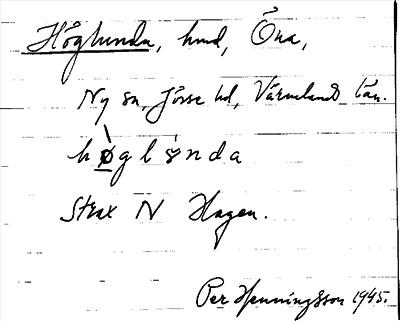 Höglunda, hmd, Öna,
Ny sn, Jösse hd, Värmlands län.
høglọnda
Strax N Hagen.
Per Henningsson 1945.